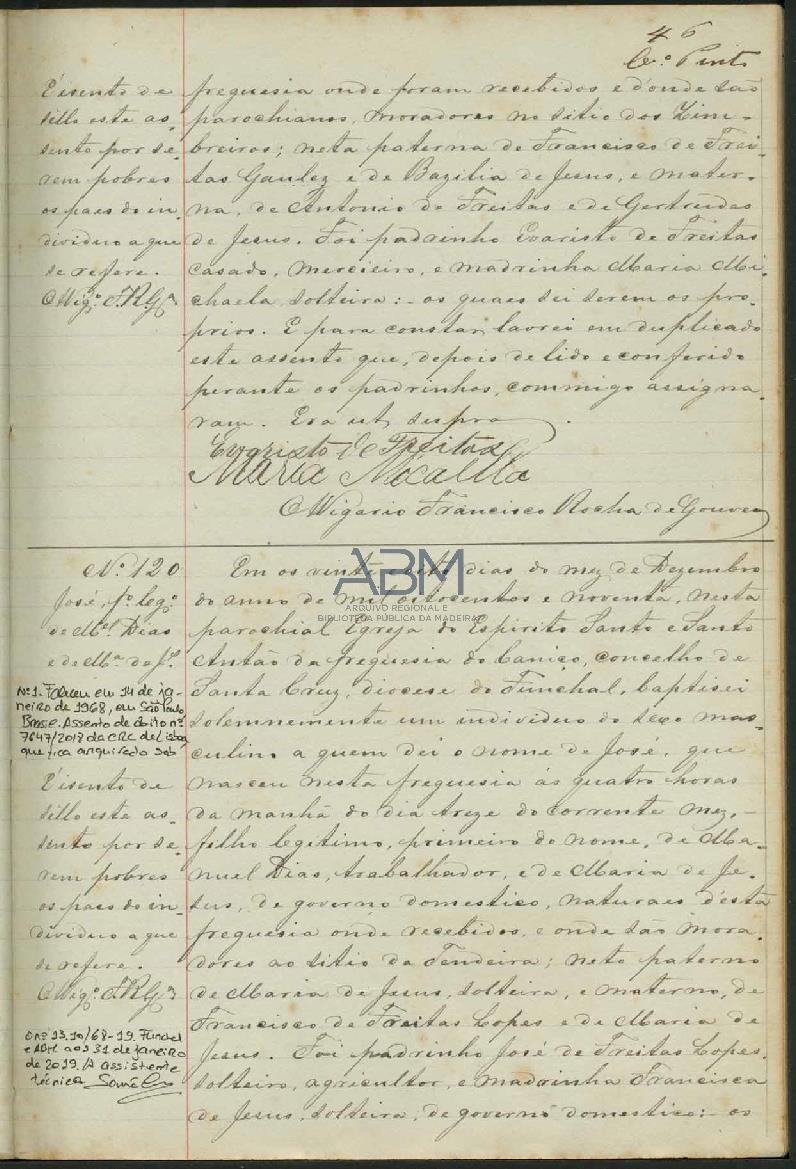 46
C.º Pinto
freguesia onde foram recebidos e d'onde são
parochianos, moradores no sitio dos Zim-
breiros; neta paterna de Francisco de Frei-
tas Gaulez e de Bazilia de Jesus, e mater-
na, de Antonio de Freitas e de Gertrudes
de Jesus. Foi padrinho Evaristo de Freitas
casado, mercieiro, e madrinha Maria Mi-
chaela, solteira: - os quaes sei serem os pro-
prios. E para constar lavrei em duplicado
este assento que, depois de lido e conferido
perante os padrinhos, commigo assigna-
ram. Era ut supra.
Evaristo de Freitas
Maria Micaella
O Vigario Francisco Rocha de Gouvea
É isento de
sello este as-
sento por se-
rem pobres
os paes do in-
dividuo a que
se refere.
O Vigº. F.R.Gª
Nº. 120
José, fº. legº.
de Mel. Dias
e de Mª. de Jª.
Nº 1. Faleceu em 14 de ja-
neiro de 1968, em São Paulo
Brasil. Assento de óbito nº
7647/2018 da CRC de Lisboa
que fica arquivado sob
É isento de
sello este as-
sento por se-
rem pobres
os paes do in-
dividuo a que
se refere.
O Vigº. F.R.Gª
o nº 13.10/68-19. Funchal
e ABM aos 31 de janeiro
de 2019. A assistente
técnica
Em os vinte e oito dias do mez de Dezembro
do anno de mil oitocentos e noventa, nesta
parochial Egreja do Espirito Santo e Santo
Antão da freguesia do Caniço, concelho de
Santa Cruz, diocese do Funchal, baptisei
solemnemente um individuo do sexo mas-
culino a quem dei o nome de José, que
nasceu nesta freguesia ás quatro horas
da manhã do dia treze do corrente mez, -
filho legitimo, primeiro do nome, de Ma-
nuel Dias, trabalhador, e de Maria de Je-
sus, de governo domestico, naturaes d'esta
freguesia onde recebidos, e onde são mora-
dores ao sitio da Tendeira; neto paterno
de Maria de Jesus, solteira, e materno, de
Francisco de Freitas Lopes e de Maria de
Jesus. Foi padrinho José de Freitas Lopes,
solteiro, agricultor, e madrinha Francisca
de Jesus, solteira, de governo domestico: - os
ABM
ARQUIVO REGIONAL E
BIBLIOTECA PÚBLICA DA MADEIRA